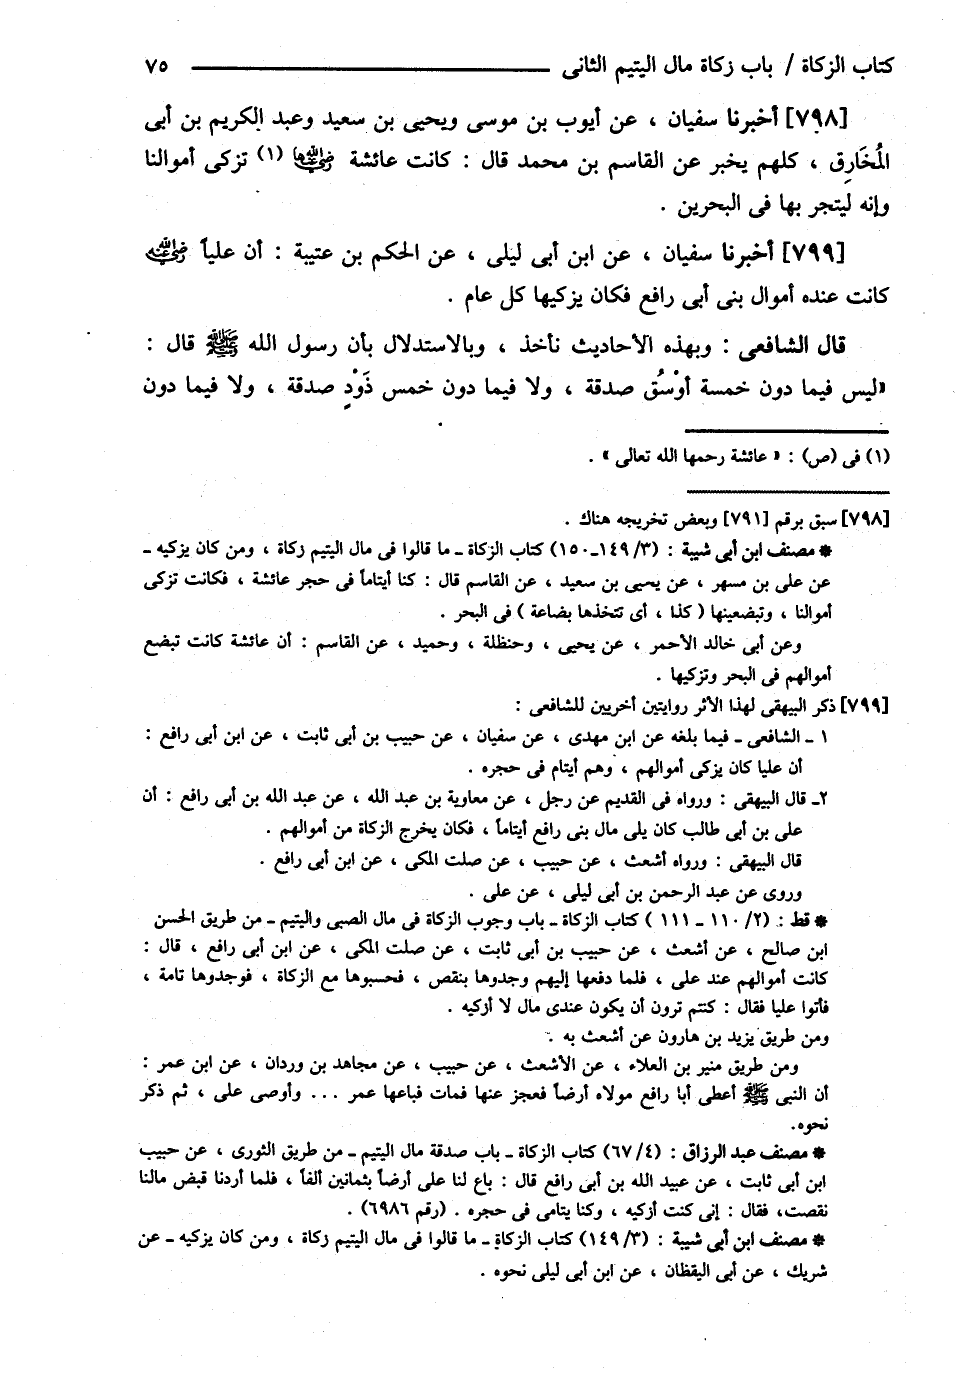 كتاب الزكاة / باب زكاة مال اليتيم الثانى ٧٥
[٧٩٨] أخبرنا سفيان ، عن أيوب بن موسى ويحيى بن سعيد وعبد الكريم بن أبى
المُخَارِق ، كلهم يخبر عن القاسم بن محمد قال : كانت عائشة رضي الله عنها (١) تزكى أموالنا
وإنه ليتجر بها فى البحرين .
[٧٩٩] أخبرنا سفيان ، عن ابن أبى ليلى ، عن الحكم بن عتيبة : أن علياً رضي الله عنه
كانت عنده أموال بنى أبى رافع فكان يزكيها كل عام .
قال الشافعى : وبهذه الأحاديث نأخذ ، وبالاستدلال بأن رسول الله ﷺ قال :
«ليس فيما دون خمسة أوْسُق صدقة ، ولا فيما دون خمس ذَوْدٍ صدقة ، ولا فيما دون
(١) فى (ص) : « عائشة رحمها الله تعالى » .
[٧٩٨] سبق برقم [٧٩١] وبعض تخريجه هناك .
* مصنف ابن أبى شيبة : (٣/ ١٤٩ـ ١٥٠) كتاب الزكاة ـ ما قالوا فى مال اليتيم زكاة ، ومن كان يزكيه ـ
عن على بن مسهر ، عن يحيى بن سعيد ، عن القاسم قال : كنا أيتاماً فى حجر عائشة ، فكانت تزكى
أموالنا ، وتبضعينها ( كذا ، أى تتخذها بضاعة ) فى البحر .
وعن أبى خالد الأحمر ، عن يحيى ، وحنظلة ، وحميد ، عن القاسم : أن عائشة كانت تبضع
أموالهم فى البحر وتزكيها .
[٧٩٩] ذكر البيهقى لهذا الأثر روايتين أخريين للشافعى :
١ ـ الشافعى ـ فيما بلغه عن ابن مهدى ، عن سفيان ، عن حبيب بن أبى ثابت ، عن ابن أبى رافع :
أن عليا كان يزكى أموالهم ، وهم أيتام فى حجره .
٢ـ قال البيهقى : ورواه فى القديم عن رجل ، عن معاوية بن عبد الله ، عن عبد الله بن أبى رافع : أن
على بن أبى طالب كان يلى مال بنى رافع أيتاماً ، فكان يخرج الزكاة من أموالهم .
قال البيهقى : ورواه أشعث ، عن حبيب ، عن صلت المكى ، عن ابن أبى رافع .
وروى عن عبد الرحمن بن أبى ليلى ، عن على .
* قط : (٢/ ١١٠ ـ ١١١ ) كتاب الزكاة ـ باب وجوب الزكاة فى مال الصبى واليتيم ـ من طريق الحسن
ابن صالح ، عن أشعث ، عن حبيب بن أبى ثابت ، عن صلت المكى ، عن ابن أبى رافع ، قال :
كانت أموالهم عند على ، فلما دفعها إليهم وجدوها بنقص ، فحسبوها مع الزكاة ، فوجدوها تامة ،
فأتوا عليا فقال : كنتم ترون أن يكون عندى مال لا أزكيه .
ومن طريق يزيد بن هارون عن أشعث به .
ومن طريق منير بن العلاء ، عن الأشعث ، عن حبيب ، عن مجاهد بن وردان ، عن ابن عمر :
أن النبى ﷺ أعطى أبا رافع مولاه أرضاً فعجز عنها فمات فباعها عمر ... وأوصى على ، ثم ذكر
نحوه.
* مصنف عبد الرزاق : (٤/ ٦٧) كتاب الزكاة ـ باب صدقة مال اليتيم ـ من طريق الثورى ، عن حبيب
ابن أبى ثابت ، عن عبيد الله بن أبى رافع قال : باع لنا على أرضاً بثمانين ألفاً ، فلما أردنا قبض مالنا
نقصت، فقال : إنى كنت أزكيه ، وكنا يتامى فى حجره . (رقم ٦٩٨٦) .
* مصنف ابن أبى شيبة : (٣/ ١٤٩) كتاب الزكاة ـ ما قالوا فى مال اليتيم زكاة ، ومن كان يزكيه ـ عن
شريك ، عن أبى اليقظان ، عن ابن أبى ليلى نحوه .